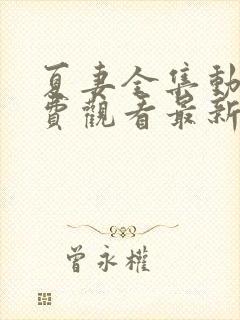 夏妻全集動
費觀看最新
曾永權